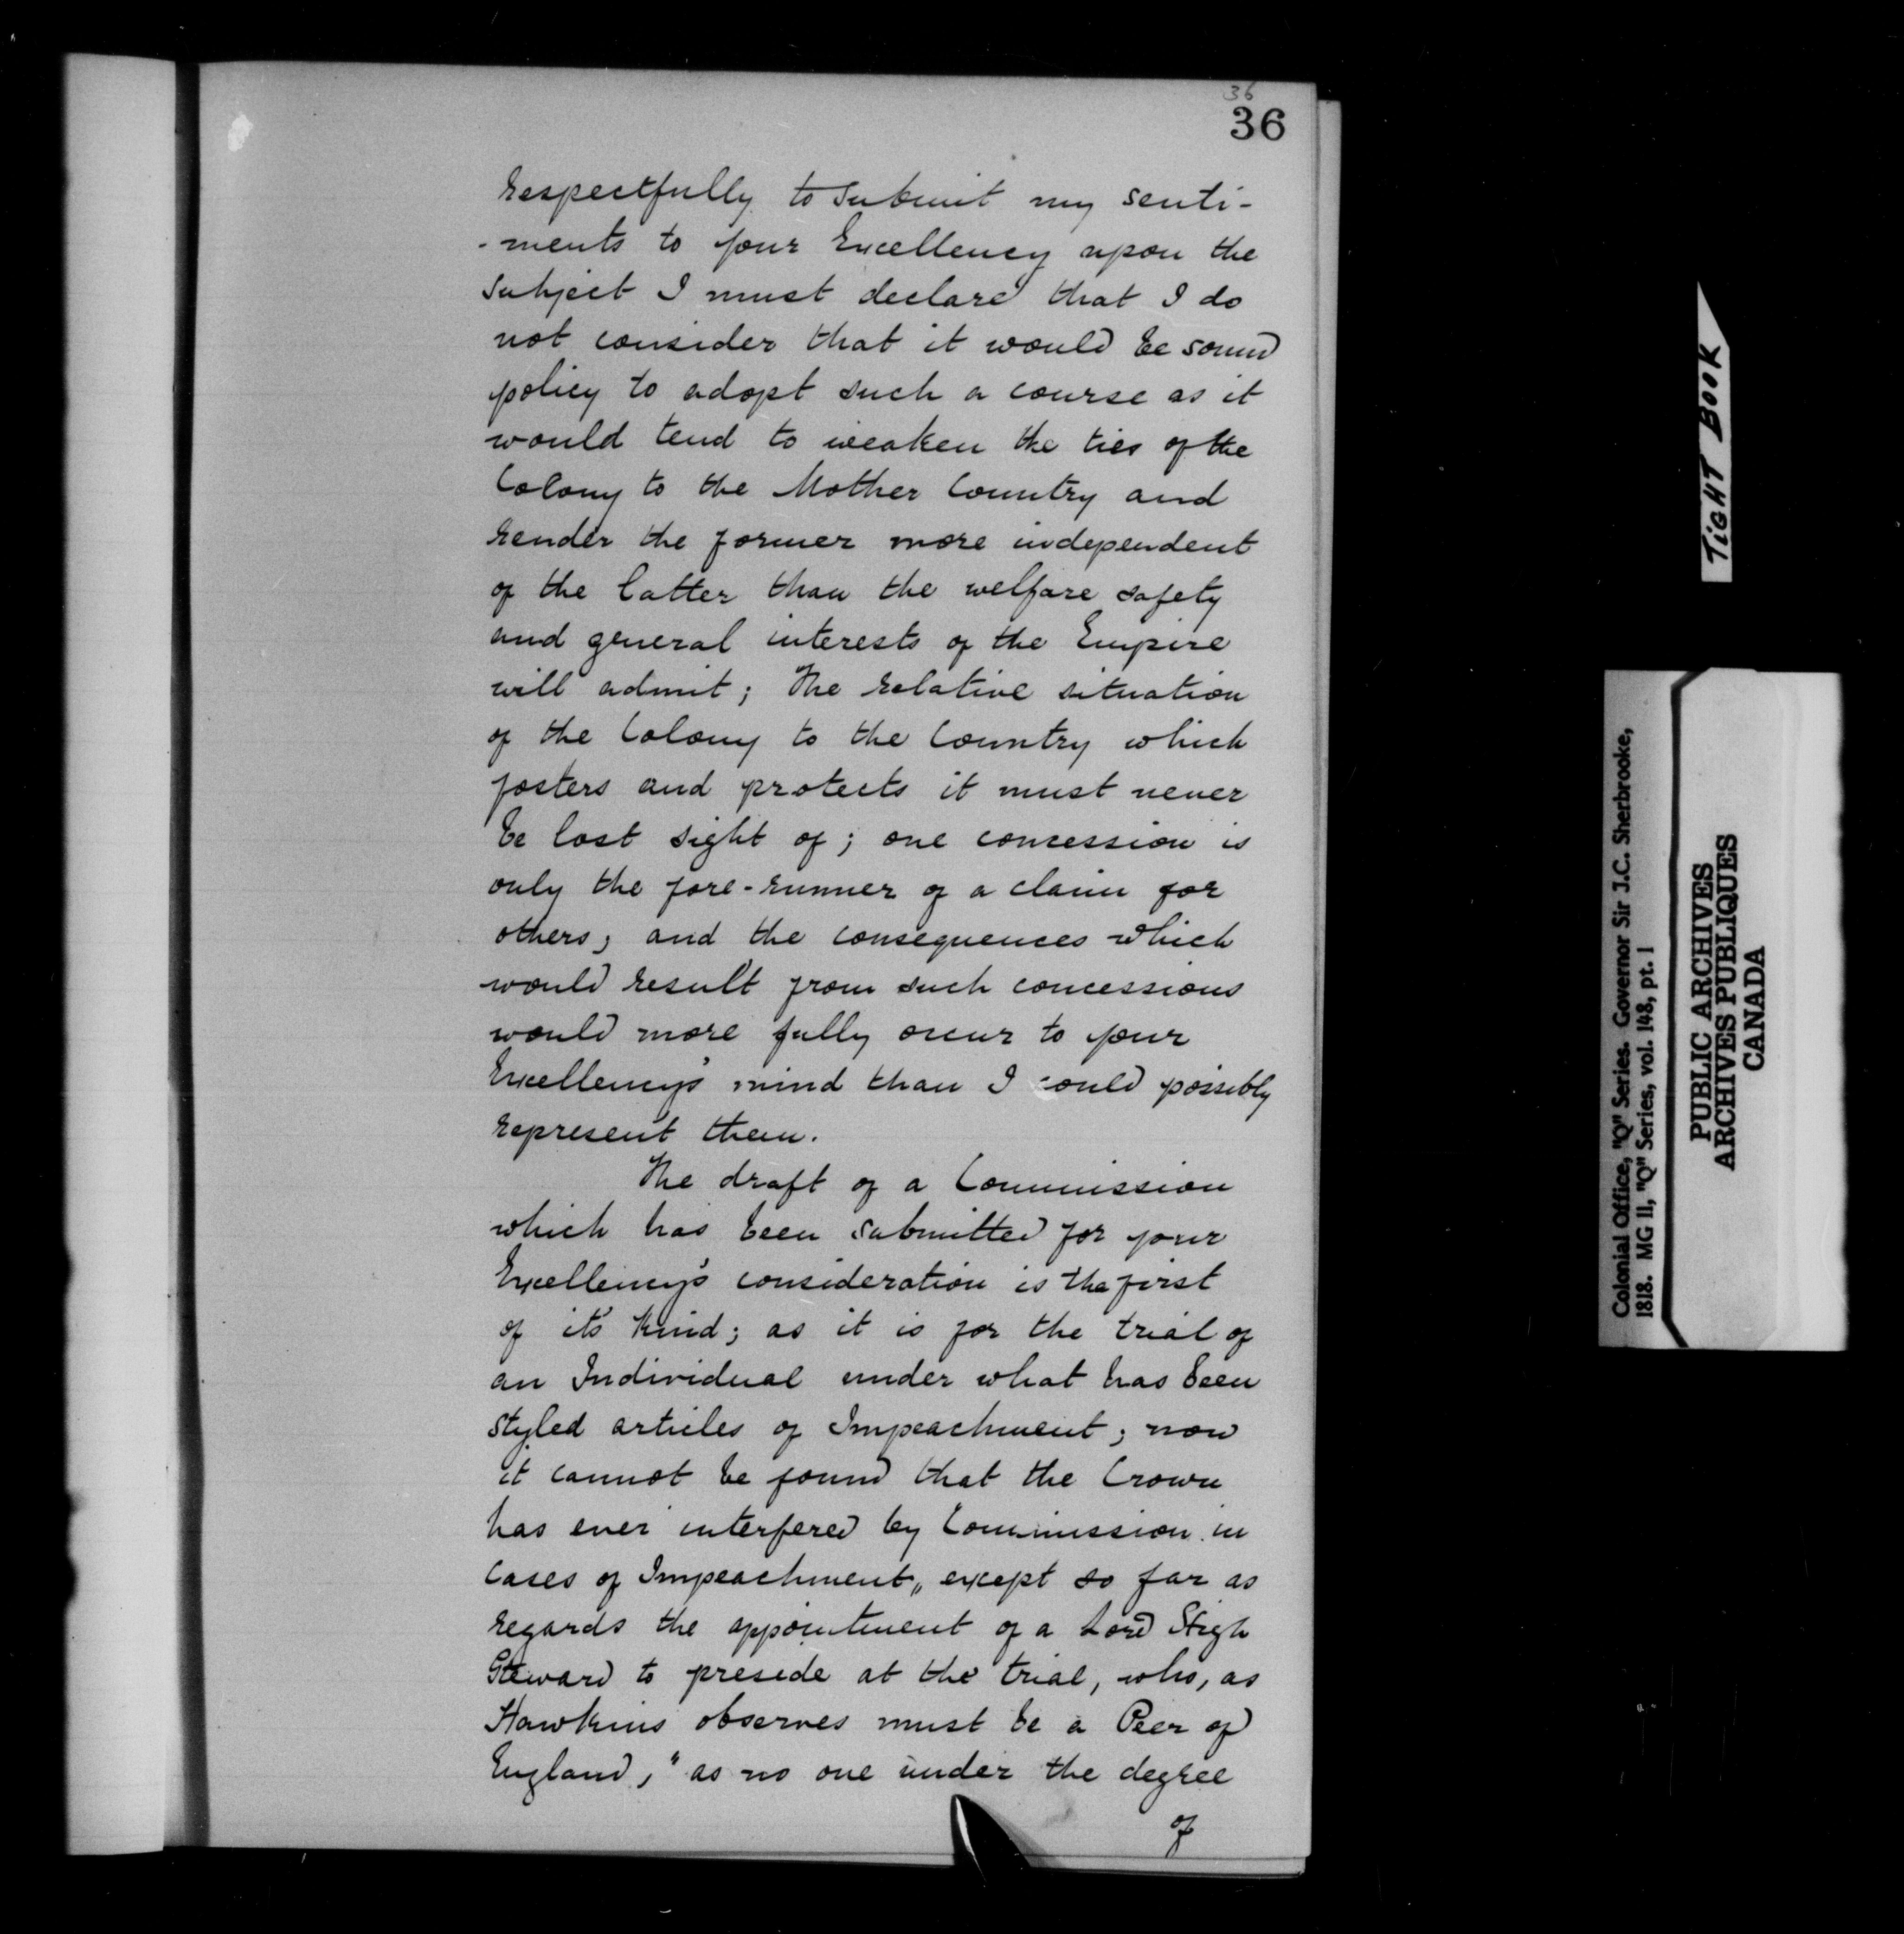 36
36
respectfully to submit my senti-
-ments to your Excellency upon the
subject I must declare that I do
not consider that it would be sound
policy to adopt such a course as it
would tend to weaken the ties of the
Colony to the Mother Country and
render the former more independent
of the latter than the welfare safety
and general interests of the Empire
will admit; The relative situation
of the Colony to the Country which
fosters and protects it must never
be lost sight of; one concession is
only the fore-runner of a claim for
others, and the consequences which
would result from such concessions
would more fully occur to your
Excellency's mind than I could possibly
represent them.
The draft of a Commission
which has been submitted for your
Excellency's consideration is the first
of it's kind; as it is for the trial of
an Individual under what has been
styled articles of Impeachment; now
it cannot be found that the Crown
has ever interfered by Commission in
cases of Impeachment, except so far as
regards the appointment of a Lord High
Steward to preside at the trial, who, as
Hawkins observes must be a Peer of
England, "as no one under the degree
of
TIGHT BOOK
Colonial Office, "Q" Series. Governor Sir J.C. Sherbrooke,
1818. MG 11, "Q" Series, vol. 148, pt. 1
PUBLIC ARCHIVES
ARCHIVES PUBLIQUES
CANADA